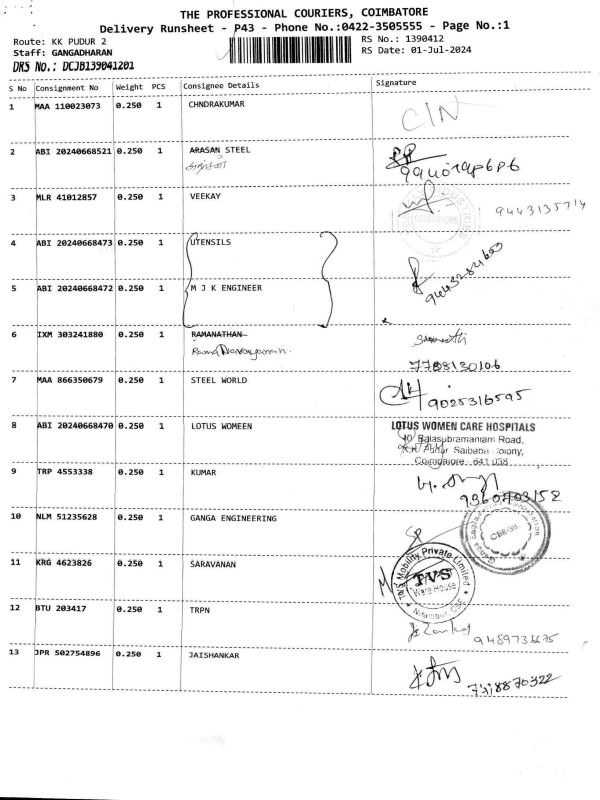 THE PROFESSIONAL COURIERS, COIMBATORE
Delivery Runsheet - P43 - Phone No.:0422-3505555 - Page No.:1
Route: KK PUDUR 2
RS No.: 1390412
Staff: GANGADHARAN
RS Date: 01-Jul-2024
DRS NO.: DCJB139041201
S No Consignment No Weight PCS Consignee Details Signature
1 MAA 110023073 0.250 1 CHNDRAKUMAR
CIN
2 ABI 20240668521 0.250 1 ARASAN STEEL
3 MLR 41012857 0.250 1 VEEKAY
9443135714
4 ABI 20240668473 0.250 1 UTENSILS
5 ABI 20240668472 0.250 1 M J K ENGINEER
6 IXM 303241880 0.250 1 RAMANATHAN
7788130106
7 MAA 866350679 0.250 1 STEEL WORLD
9025316595
8 ABI 20240668470 0.250 1 LOTUS WOMEEN
LOTUS WOMEN CARE HOSPITALS
Balasubramaniam Road,
Saibaba Colony,
Coimbatore - 641 038
9 TRP 4553338 0.250 1 KUMAR
9360703152
10 NLM 51235628 0.250 1 GANGA ENGINEERING
CBE-38
11 KRG 4623826 0.250 1 SARAVANAN
TVS Mobility Private Limited
TVS
Ware House
12 BTU 203417 0.250 1 TRPN
13 JPR 502754896 0.250 1 JAISHANKAR